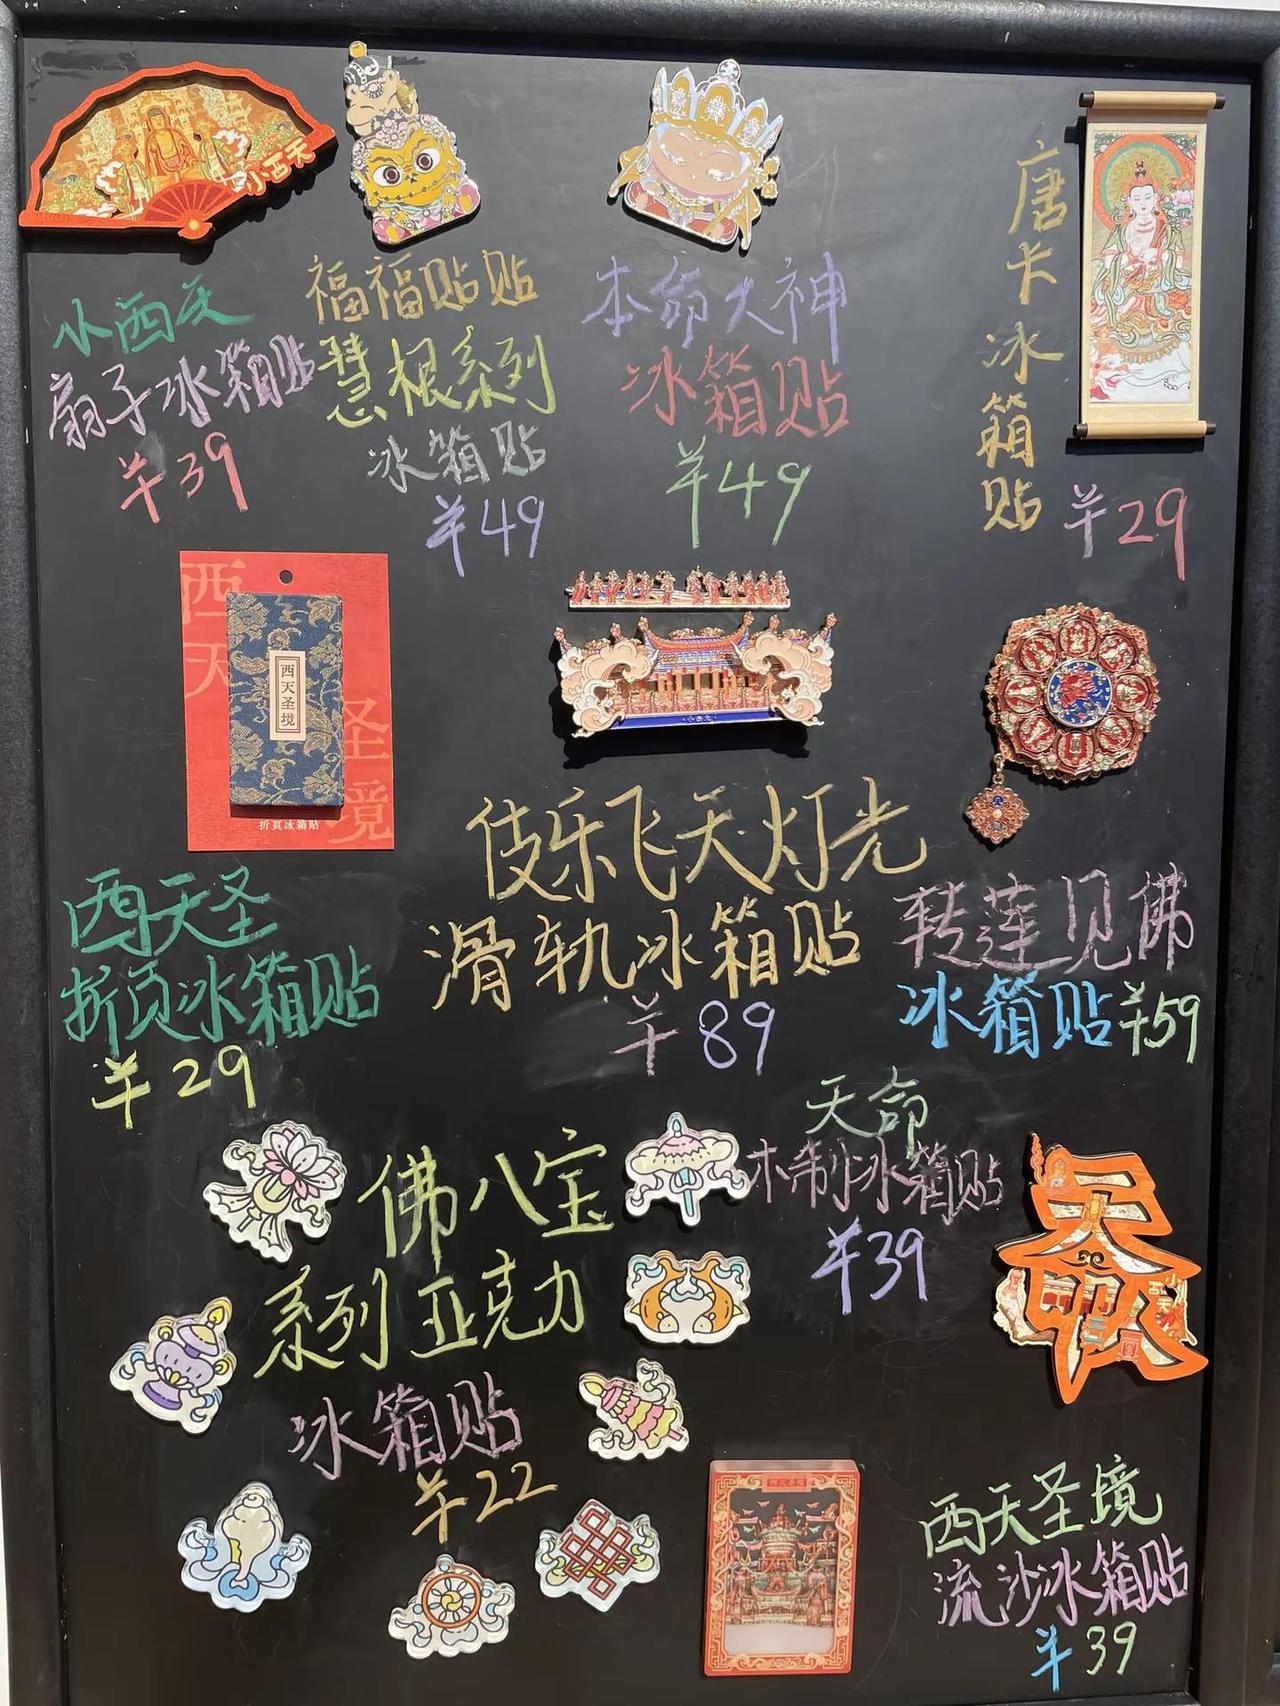 小西天
小西天
扇子冰箱贴
¥39
福福贴贴
慧根系列
冰箱贴
¥49
本命大神
冰箱贴
¥49
唐卡冰箱贴
¥29
西天圣境
西天圣境
折页冰箱贴
西天圣
折页冰箱贴
¥29
小西天
伎乐飞天灯光
滑轨冰箱贴
¥89
转莲见佛
冰箱贴¥59
佛八宝
系列亚克力
冰箱贴
¥22
天命
木制冰箱贴
¥39
天命
小西天
西天圣境
西天圣境
流沙冰箱贴
¥39